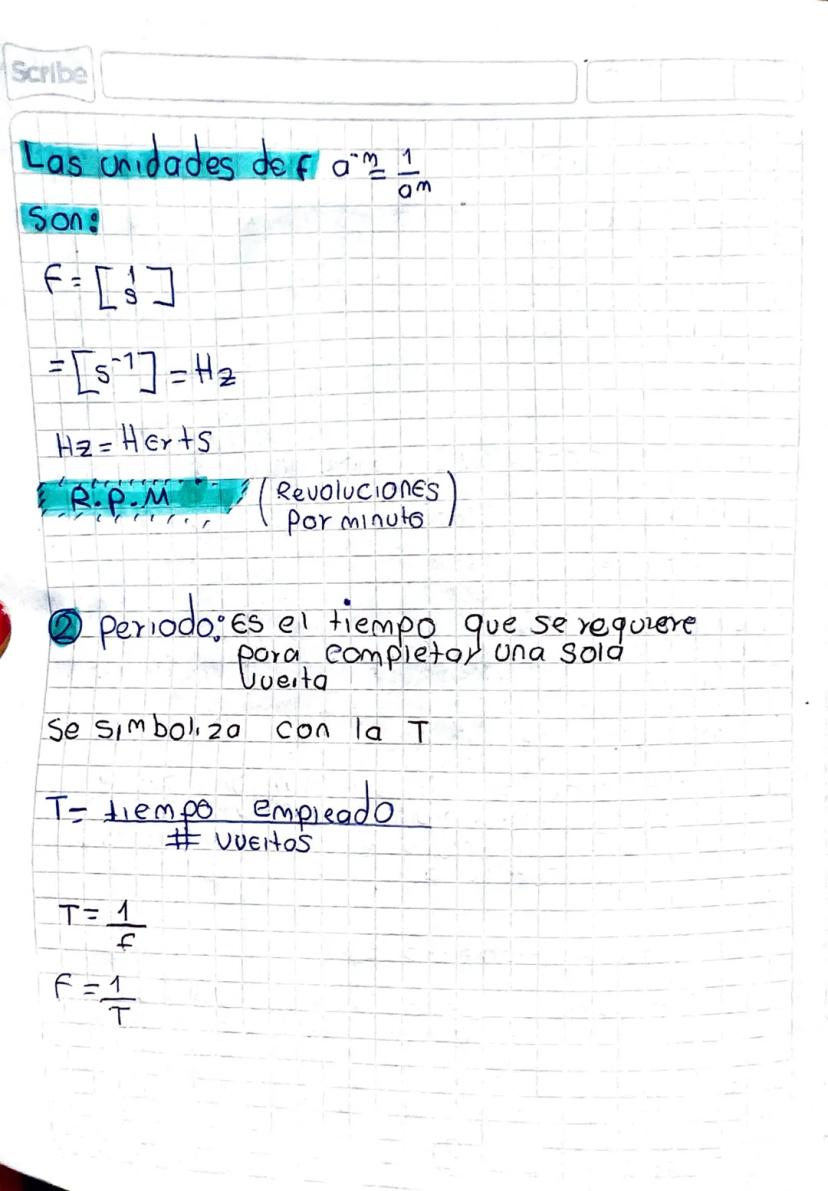 Scribe
Las unidades de f a⁻ᵐ = 1/aᵐ
Son:
F = [1/s]
= [s⁻¹] = Hz
Hz = Herts
R.P.M (Revoluciones
por minuto)
② Periodo: Es el tiempo que se requiere
para completar una sola
vuelta
Se simboliza con la T
T = tiempo empleado
# vueltas
T = 1/f
F = 1/T